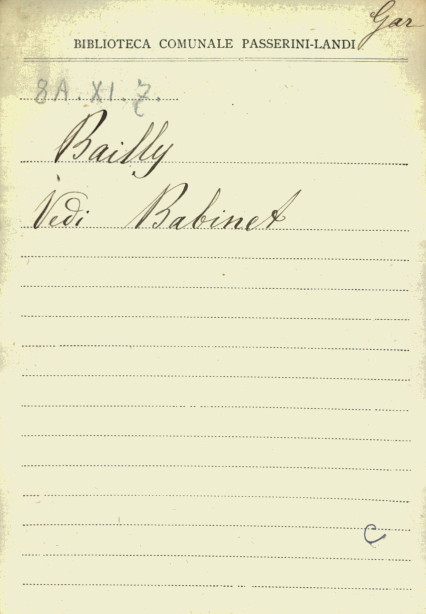 Gar
BIBLIOTECA COMUNALE PASSERINI-LANDI
8A.XI.7.
Bailly
Vedi Babinet
C